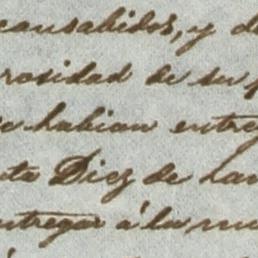 causabidos, y d
rosidad de su
e habian entre
ta Diez de la
ntregar á la mu